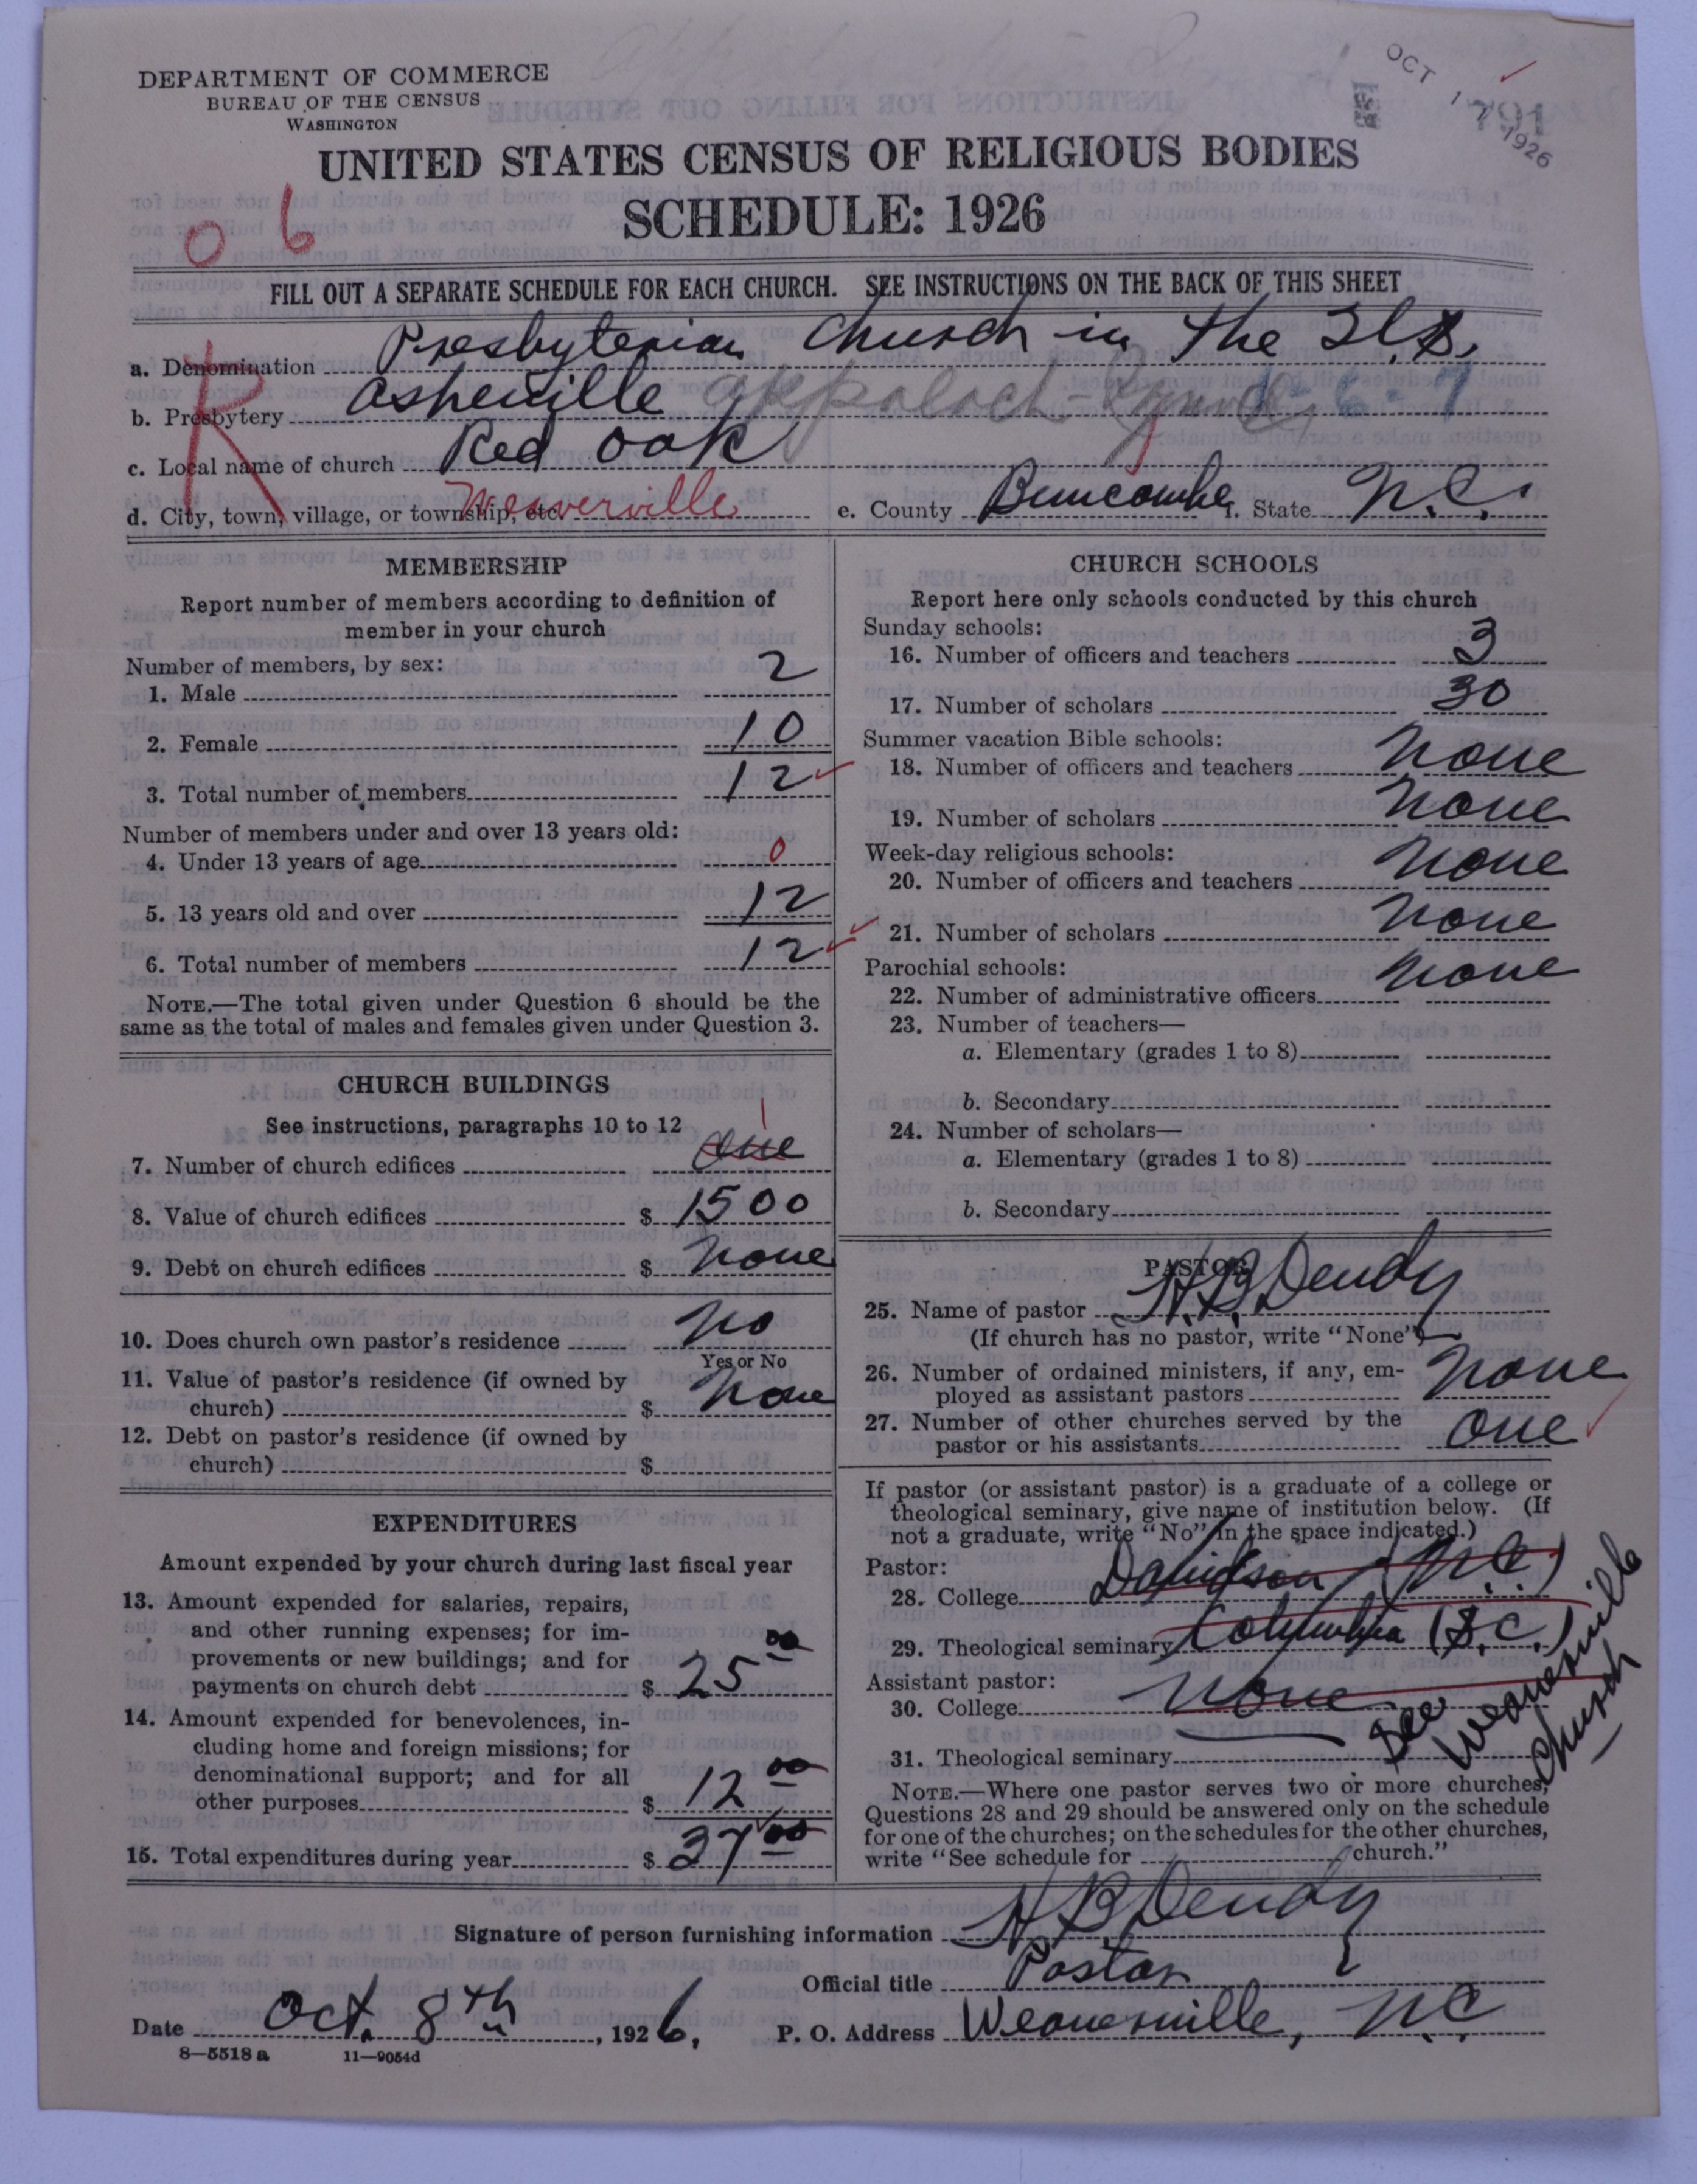 DEPARTMENT OF COMMERCE
BUREAU OF THE CENSUS
WASHINGTON
OCT 17 1926
791
UNITED STATES CENSUS OF RELIGIOUS BODIES
SCHEDULE: 1926
0 6
FILL OUT A SEPARATE SCHEDULE FOR EACH CHURCH. SEE INSTRUCTIONS ON THE BACK OF THIS SHEET
R
a. Denomination Presbyterian Church in the U.S.
b. Presbytery Asheville Appalach-Synod 1-6-7
c. Local name of church Red Oak
d. City, town, village, or township, etc. Weaverville e. County Buncombe f. State N.C.
MEMBERSHIP
Report number of members according to definition of
member in your church
Number of members, by sex:
1. Male 2
2. Female 10
3. Total number of members 12
Number of members under and over 13 years old:
4. Under 13 years of age 0
5. 13 years old and over 12
6. Total number of members 12
NOTE.—The total given under Question 6 should be the
same as the total of males and females given under Question 3.
CHURCH BUILDINGS
See instructions, paragraphs 10 to 12
1
7. Number of church edifices One
8. Value of church edifices $ 1500
9. Debt on church edifices $ None
10. Does church own pastor's residence No
Yes or No
11. Value of pastor's residence (if owned by
church) $ None
12. Debt on pastor's residence (if owned by
church) $
EXPENDITURES
Amount expended by your church during last fiscal year
13. Amount expended for salaries, repairs,
and other running expenses; for im-
provements or new buildings; and for
payments on church debt $ 25 00
14. Amount expended for benevolences, in-
cluding home and foreign missions; for
denominational support; and for all
other purposes $ 12 00
15. Total expenditures during year $ 37 00
CHURCH SCHOOLS
Report here only schools conducted by this church
Sunday schools:
16. Number of officers and teachers 3
17. Number of scholars 30
Summer vacation Bible schools:
18. Number of officers and teachers None
19. Number of scholars None
Week-day religious schools:
20. Number of officers and teachers None
21. Number of scholars None
Parochial schools:
22. Number of administrative officers None
23. Number of teachers—
a. Elementary (grades 1 to 8)
b. Secondary
24. Number of scholars—
a. Elementary (grades 1 to 8)
b. Secondary
PASTOR
25. Name of pastor H.B. Dendy
(If church has no pastor, write "None")
26. Number of ordained ministers, if any, em-
ployed as assistant pastors None
27. Number of other churches served by the
pastor or his assistants One
If pastor (or assistant pastor) is a graduate of a college or
theological seminary, give name of institution below. (If
not a graduate, write "No" in the space indicated.)
Pastor:
28. College Davidson (N.C.)
29. Theological seminary Columbia (S.C.)
Assistant pastor:
30. College None
See Weaverville Church
31. Theological seminary
NOTE.—Where one pastor serves two or more churches,
Questions 28 and 29 should be answered only on the schedule
for one of the churches; on the schedules for the other churches,
write "See schedule for church."
Signature of person furnishing information H B Dendy
Official title Pastor
Date Oct. 8th, 1926, P. O. Address Weaverville, N.C
8—5518 a 11—9054d